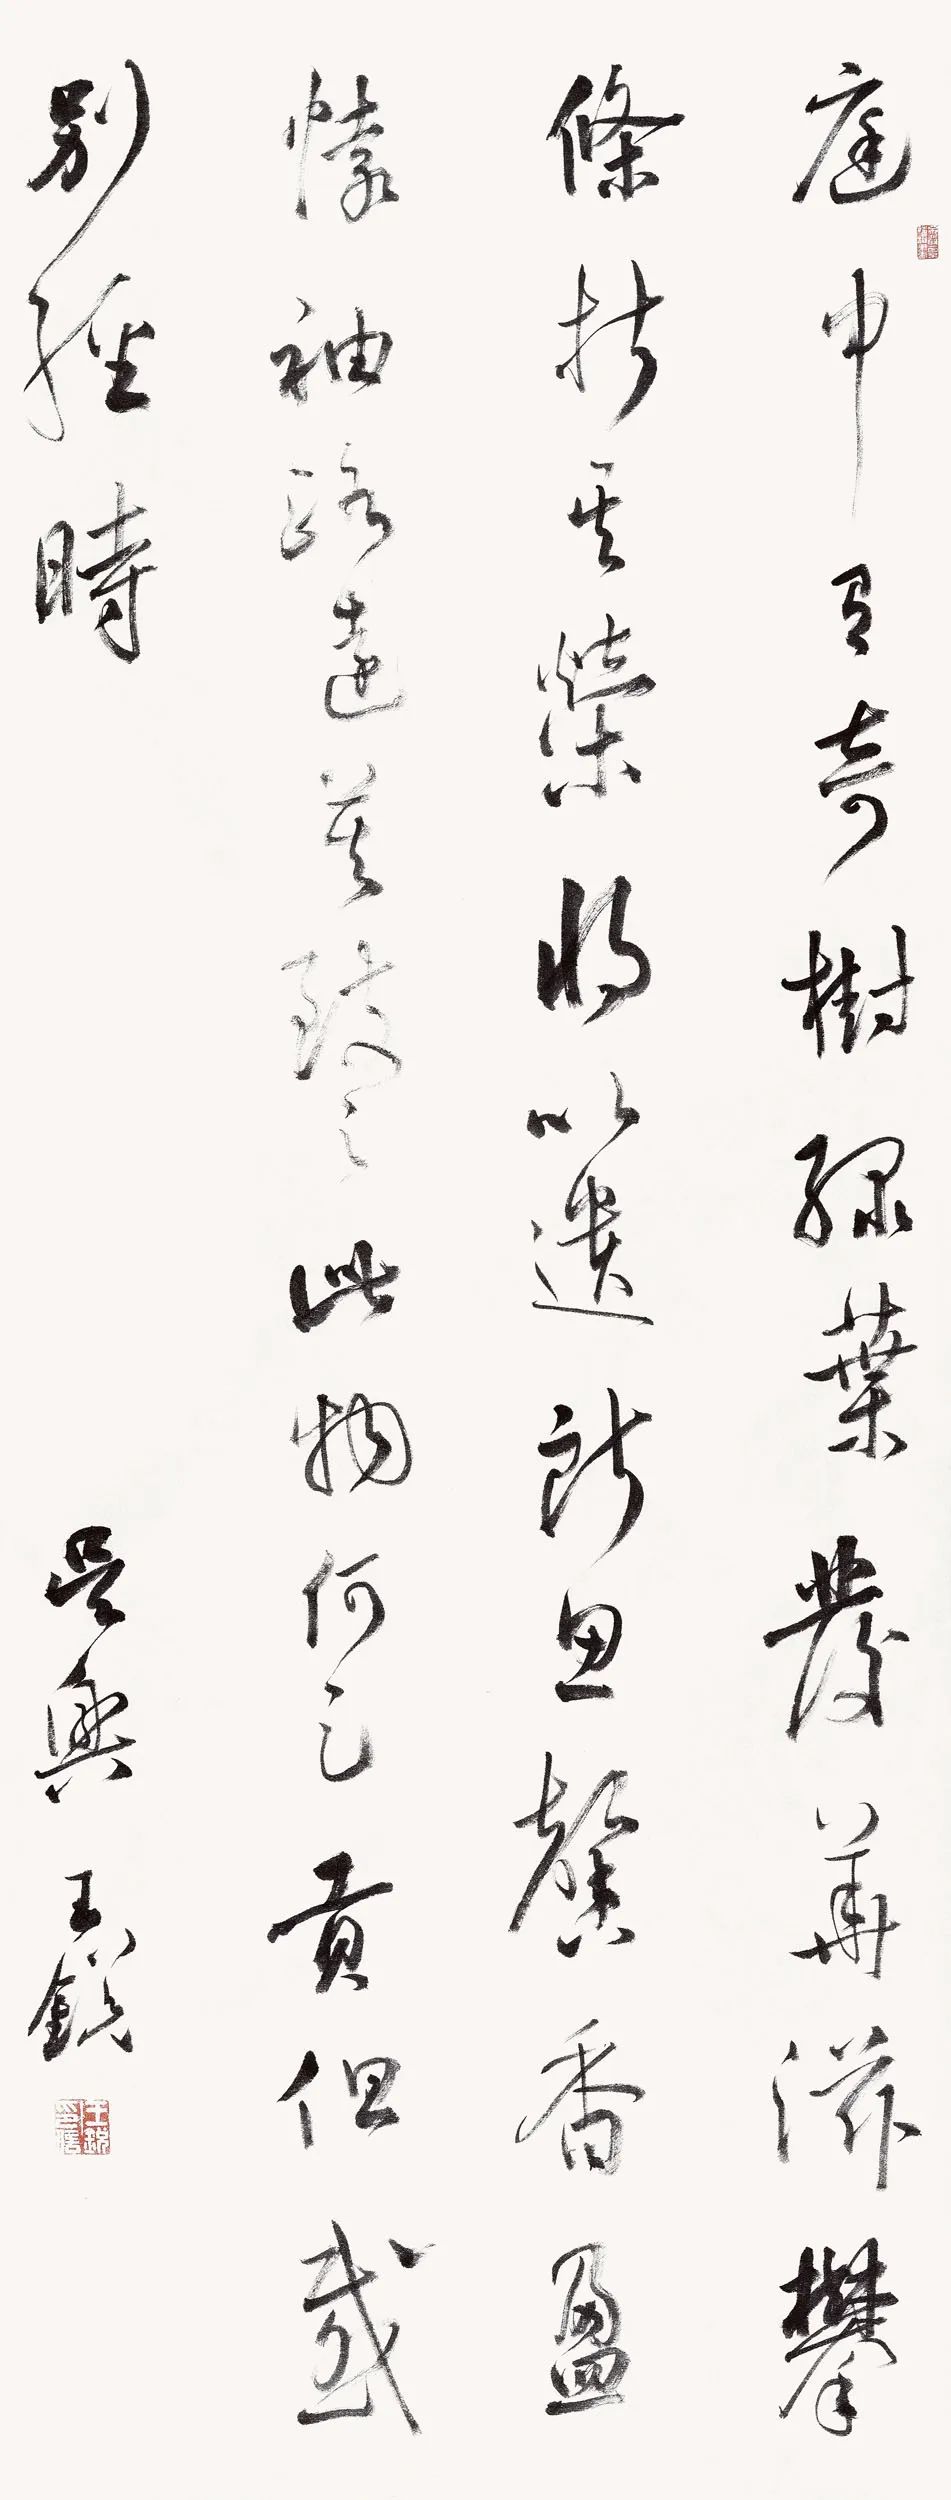 庭中有奇樹綠葉發華滋攀
條折其榮將以遺所思馨香盈
懷袖路遠莫致之此物何足貢但感
別經時
吳興王銳